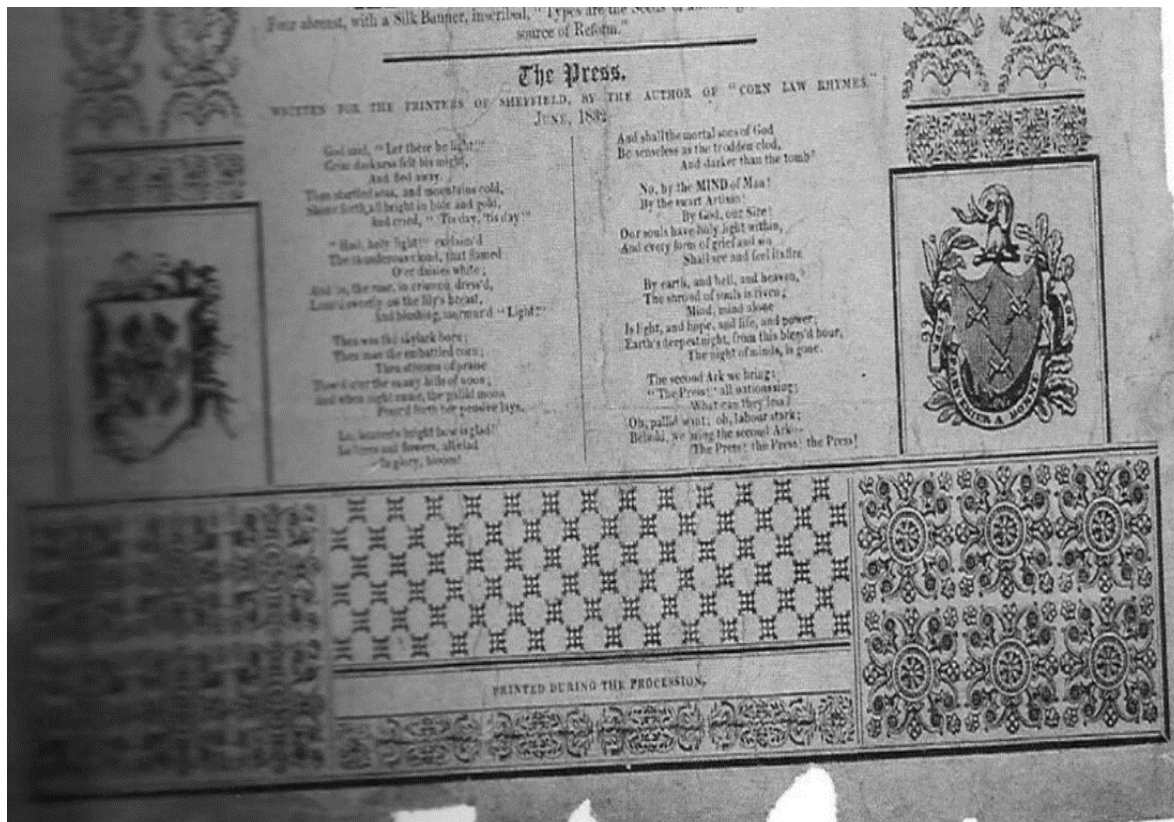 Four abreast, with a Silk Banner, inscribed, "Types are the Seeds of
source of Reform."
The Press.
WRITTEN FOR THE PRINTERS OF SHEFFIELD, BY THE AUTHOR OF "CORN LAW RHYMES."
JUNE, 1832
God said, "Let there be light!"
Grim darkness felt his might,
And fled away.
Then startled seas, and mountains cold,
Shone forth, all bright in and gold,
And cried, "'Tis day, 'tis day!"
"Hail, holy light!" exclaim'd
The thunderous cloud, that flamed
O'er daisies white;
And lo, the rose, in crimson dress'd,
Lean'd sweetly on the lily's breast,
And blushing, murmur'd "Light!"
Then was the skylark born;
Then rose the embattled corn;
Then streams of praise
Flow'd o'er the sunny hills of noon;
And when night came, the pallid moon
Pour'd forth her pensive lays.
Lo, heaven's bright bow is glad!
Lo, trees and flowers, all clad
In glory, bloom!
And shall the mortal sons of God
Be senseless as the trodden clod,
And darker than the tomb?
No, by the MIND of Man!
By the swart Artisan!
By God, our Sire!
Our souls have holy light within,
And every form of grief and sin
Shall see and feel its fire
By earth, and hell, and heaven,
The shroud of souls is riven;
Mind, mind alone
Is light, and hope, and life, and power;
Earth's deepest night, from this bless'd hour,
The night of minds, is gone.
The second Ark we bring:
"The Press!" all nations sing;
What can they less?
Oh, pallid want; oh, labour stark;
Behold, we bring the second Ark--
The Press! the Press! the Press!
PARVENIR A BONNE
FOY
PRINTED DURING THE PROCESSION.